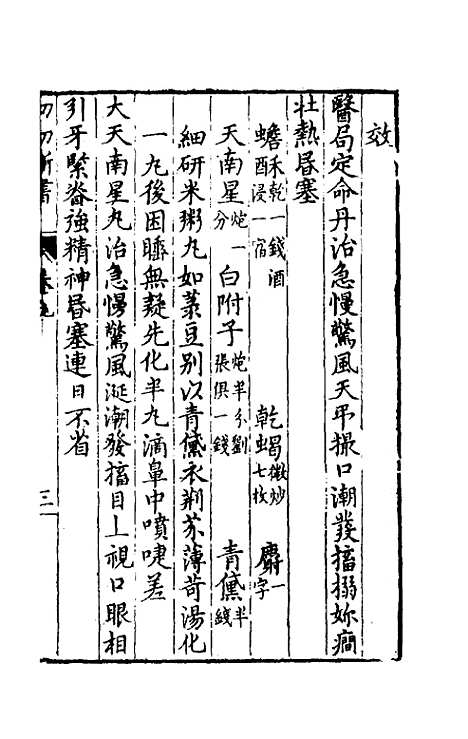 效
醫局定命丹治急慢驚風天弔撮口潮發搐搦奶癇
壯熱昏塞
蟾酥乾一錢酒浸一宿 乾蝎七枚微炒 麝一字
天南星炮一分 白附子炮半分劉張俱一錢 青黛半錢
細研米粥丸如菉豆別以青黛衣荆芥薄苛湯化
一丸後困睡無疑先化半丸滴鼻中噴嚏差
大天南星丸治急慢驚風涎潮發搐目上視口眼相
引牙緊脊強精神昏塞連日不省
幼幼新書 卷九 三